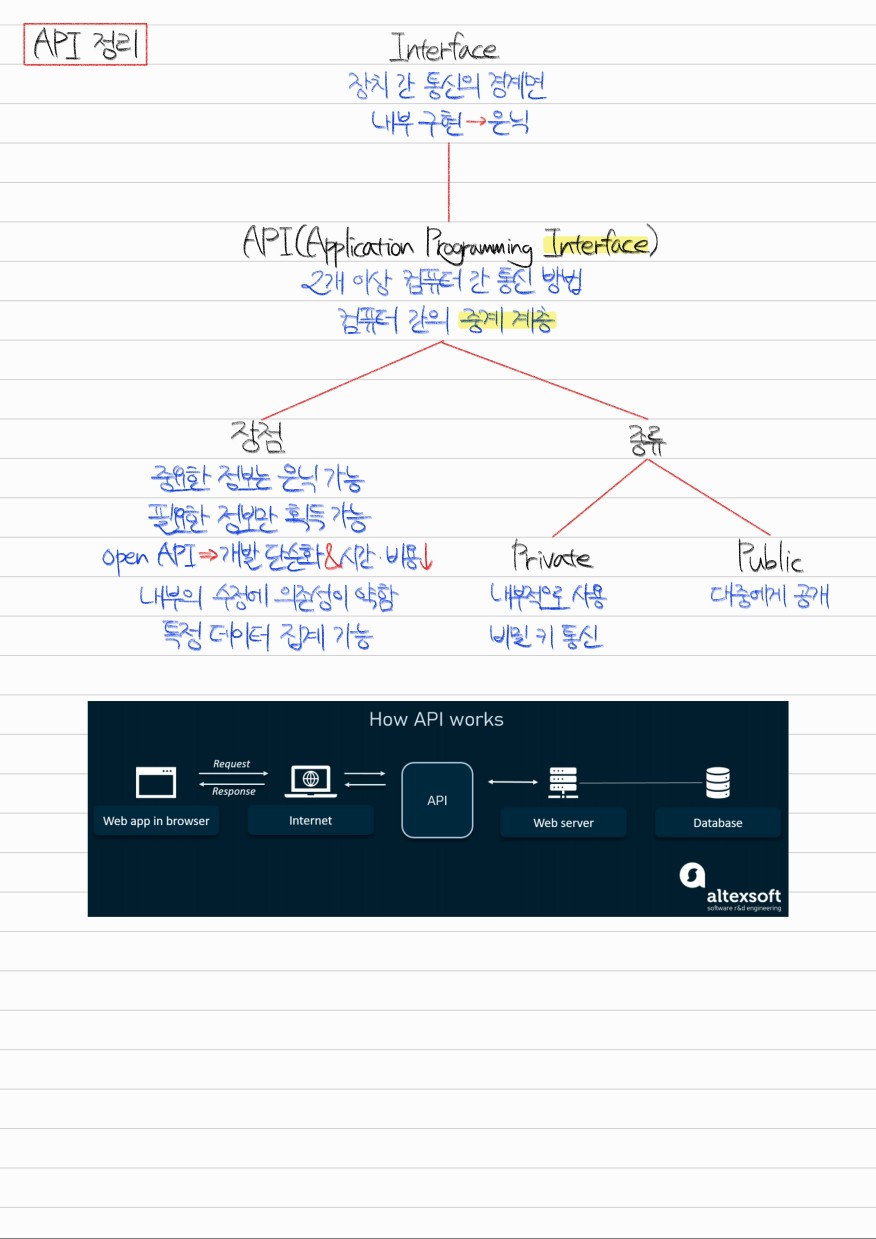 API 정리
Interface
장치 간 통신의 경계면
내부 구현→은닉
API(Application Programming Interface)
2개 이상 컴퓨터 간 통신 방법
컴퓨터 간의 중계 계층
장점
중요한 정보는 은닉 가능
필요한 정보만 획득 가능
open API⇒개발 단순화&시간·비용↓
내부의 수정에 의존성이 약함
특정 데이터 집계 가능
종류
Private
내부적으로 사용
비밀 키 통신
Public
대중에게 공개
How API works
Request
Response
Web app in browser
Internet
API
Web server
Database
altexsoft
software r&d engineering